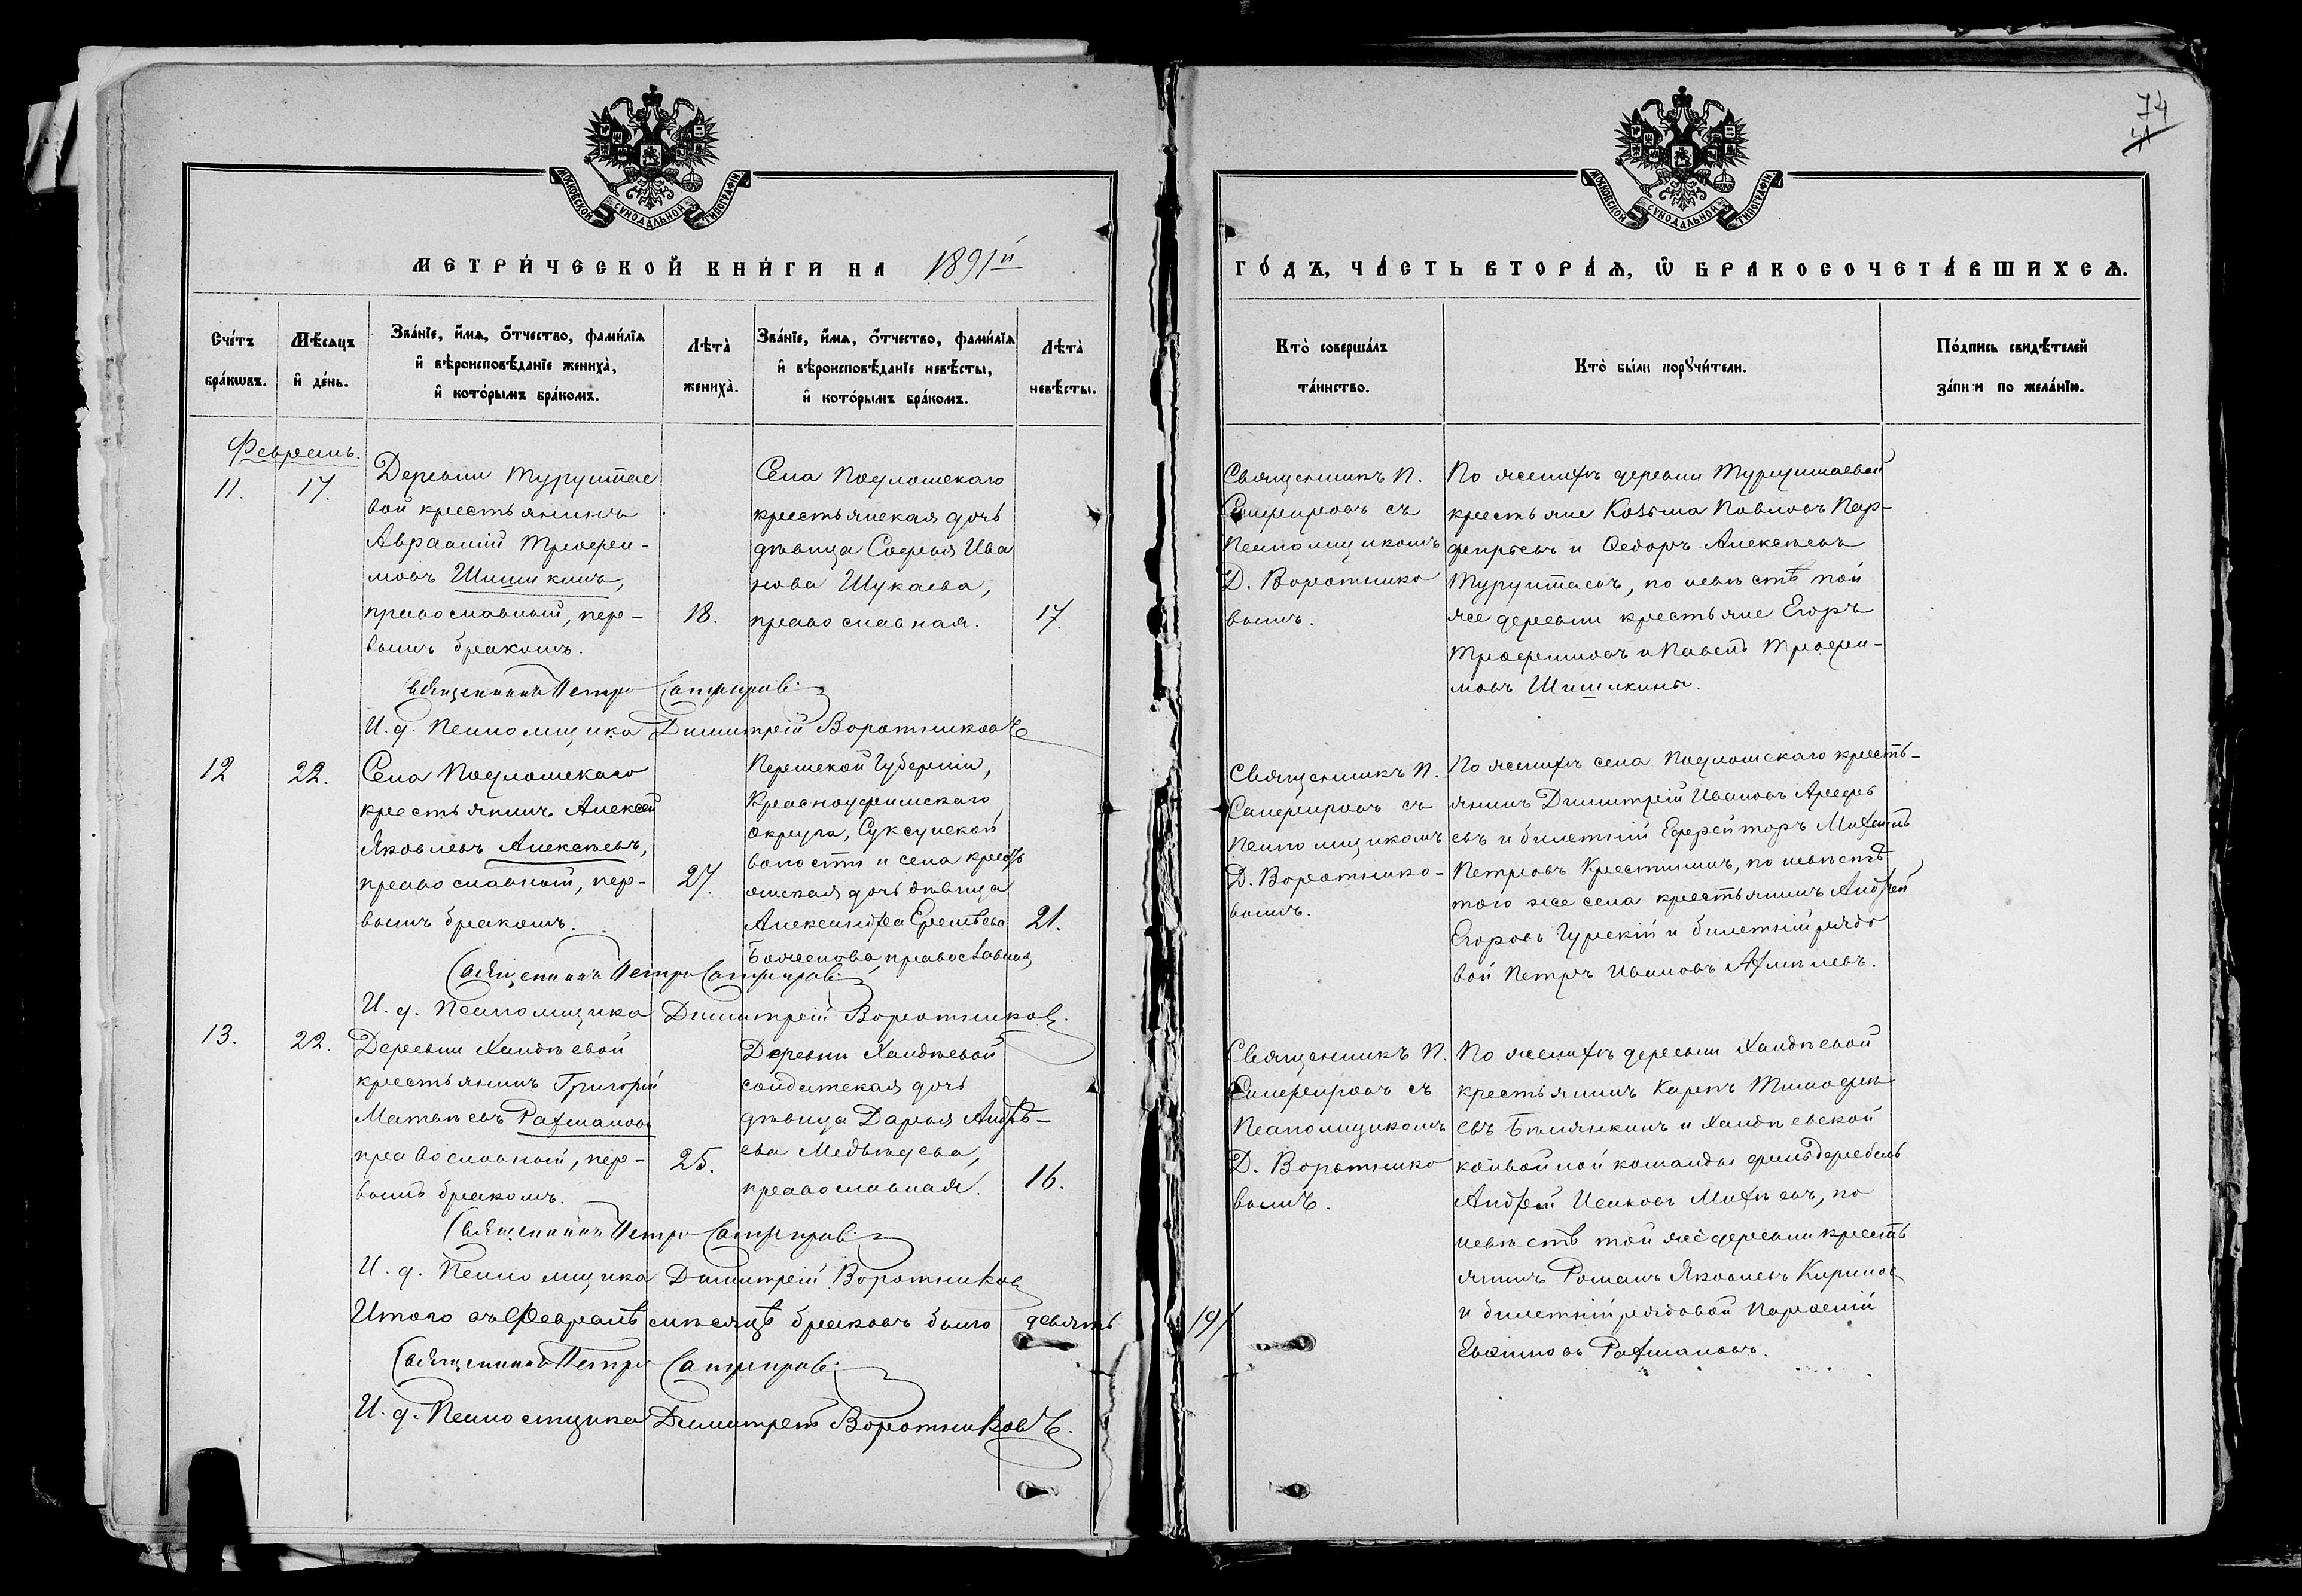 74
МОСКОВСКОЙ СѴНОДАЛЬНОЙ ТИПОГРАФІИ
МЕТРИ́ЧЕСКОЙ КНИ́ГИ НА 1891й
Сче́тъ бра́кѡвъ.
Мѣ́сяцъ и҆ де́нь.
Зва́нїе, и҆́мѧ, ѻ҆́тчество, фами́лїѧ
и҆ вѣроисповѣ́данїе жениха̀,
и҆ кото́рымъ бра́комъ.
Лѣта̀ жениха̀.
Зва́нїе, и҆́мѧ, ѻ҆́тчество, фами́лїѧ
и҆ вѣроисповѣ́данїе невѣ́сты,
и҆ кото́рымъ бра́комъ.
Лѣта̀ невѣ́сты.
Февраль.
11.
17.
Деревни Турунтае
вой крестьянинъ
Авраамій Трофи-
мовъ Шишкинъ,
православный, пер-
вымъ бракомъ.
18.
Села Подлошскаго
крестьянская дочь
дѣвица Софья Ива
нова Шукаева,
православная.
17.
Священникъ Петръ Сапфировъ
И. д. Псаломщика Димитрій Воротниковъ
12
22.
Села Подлошскаго
крестьянинъ Алексей
Яковлевъ Алексѣевъ,
православный, пер-
вымъ бракомъ.
27.
Пермской Губерніи,
Красноуфимскаго
округа, Суксунской
волости и села кресть
янская дочь дѣвица
Александра
православная
21.
Священникъ Петръ Сапфировъ
И. д. Псаломщика Димитрій Воротниковъ.
13.
22.
Деревни Хандѣевой
крестьянинъ Григорій
Матвѣевъ Рахмановъ
православный, пер-
вымъ бракомъ.
25.
Деревни Хандѣевой
солдатская дочь
дѣвица Дарья Андрѣ-
ева Медвѣдева,
православная.
16.
Священникъ Петръ Сапфировъ
И. д. Псаломщика Димитрій Воротниковъ
Итого въ Февралѣ мѣсяцѣ браковъ было девять /9/
Священникъ Петръ Сапфировъ
И. д. Псаломщика Димитрій Воротниковъ.
МОСКОВСКОЙ СѴНОДАЛЬНОЙ ТИПОГРАФІИ
ГО́ДЪ, ЧА́СТЬ ВТОРА́Ѧ, Ѡ҆ БРАКОСОЧЕТА́ВШИХСѦ.
Кто̀ соверша́лъ та́инство.
Кто̀ бы́ли порꙋчи́тели.
По́дпись свидѣ́телей за́писи по жела́нїю.
Священникъ П.
Сапфировъ съ
Псаломщикомъ
Д. Воротнико
вымъ.
По женихѣ деревни Турунтаевой
крестьяне Козьма Павловъ Пар-
и Ѳедоръ Алексѣевъ
Турунтаевъ, по невѣстѣ той
же деревни крестьяне Егоръ
Трофимовъ и Павелъ Трофи-
мовъ Шишкины.
Священникъ П.
Сапфировъ съ
Псаломщикомъ
Д. Воротнико-
вымъ.
По женихѣ села Подлошскаго кресть-
янинъ Димитрій Ивановъ Арефь
евъ и билетній Ефрейторъ Михаилъ
Петровъ Крестининъ, по невѣстѣ
того же села крестьянинъ Андрей
Егоровъ Гурскій и билетній рядо
вой Петръ Ивановъ
Священникъ П.
Сапфировъ съ
Псаломщикомъ
Д. Воротнико
вымъ.
По женихѣ деревни Хандѣевой
крестьянинъ Карпъ Тимофѣ
евъ Бѣлянкинъ и Хандѣевской
конвойной команды фельдфебель
Андрей Исаковъ Михѣевъ, по
невѣстѣ той же деревни кресть
янинъ Романъ Яковлевъ
и билетній рядовой Парфеній
Рахмановъ.